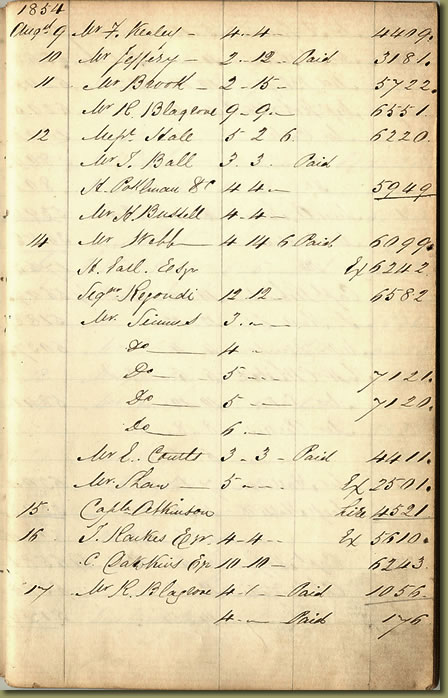 1854
Augst 9 Mr F. Healey 4 - 4 - 4409.
10 Mr Jeffery 2 - 12 - Paid 3181.
11 Mr Brook 2 - 15 - 5722.
Mr R Blagrove 9 - 9 - 6551
12 Messrs Hall 5 2 6 6220
Mr J. Ball 3 . 3 . Paid
H. Pohlman &c 4 4 - 5949
Mr H Bussell 4 - 4 -
14 Mr Webb 4 14 6 Paid 6099.
H. Earl. Esqr Ex 6242
Segr. Regondi 12 12 - 6582
Mr. 3 . - -
Do 4 -
Do 5 - - 7121.
Do 5 - - 7120.
Do 6 -
Mr E. Coutts 3 - 3 - Paid 4411.
Mr. Shaw 5 - - Ex 2501.
15 Captn Atkinson Hire 4521
16 J. Hawkes Esqr. 4 - 4 - Ex 5610.
C. Dawkins Esq 10 - 10 - 6243
17 Mr R. Blagrove 4 - 1 - Paid 1056.
4 . - Paid 176